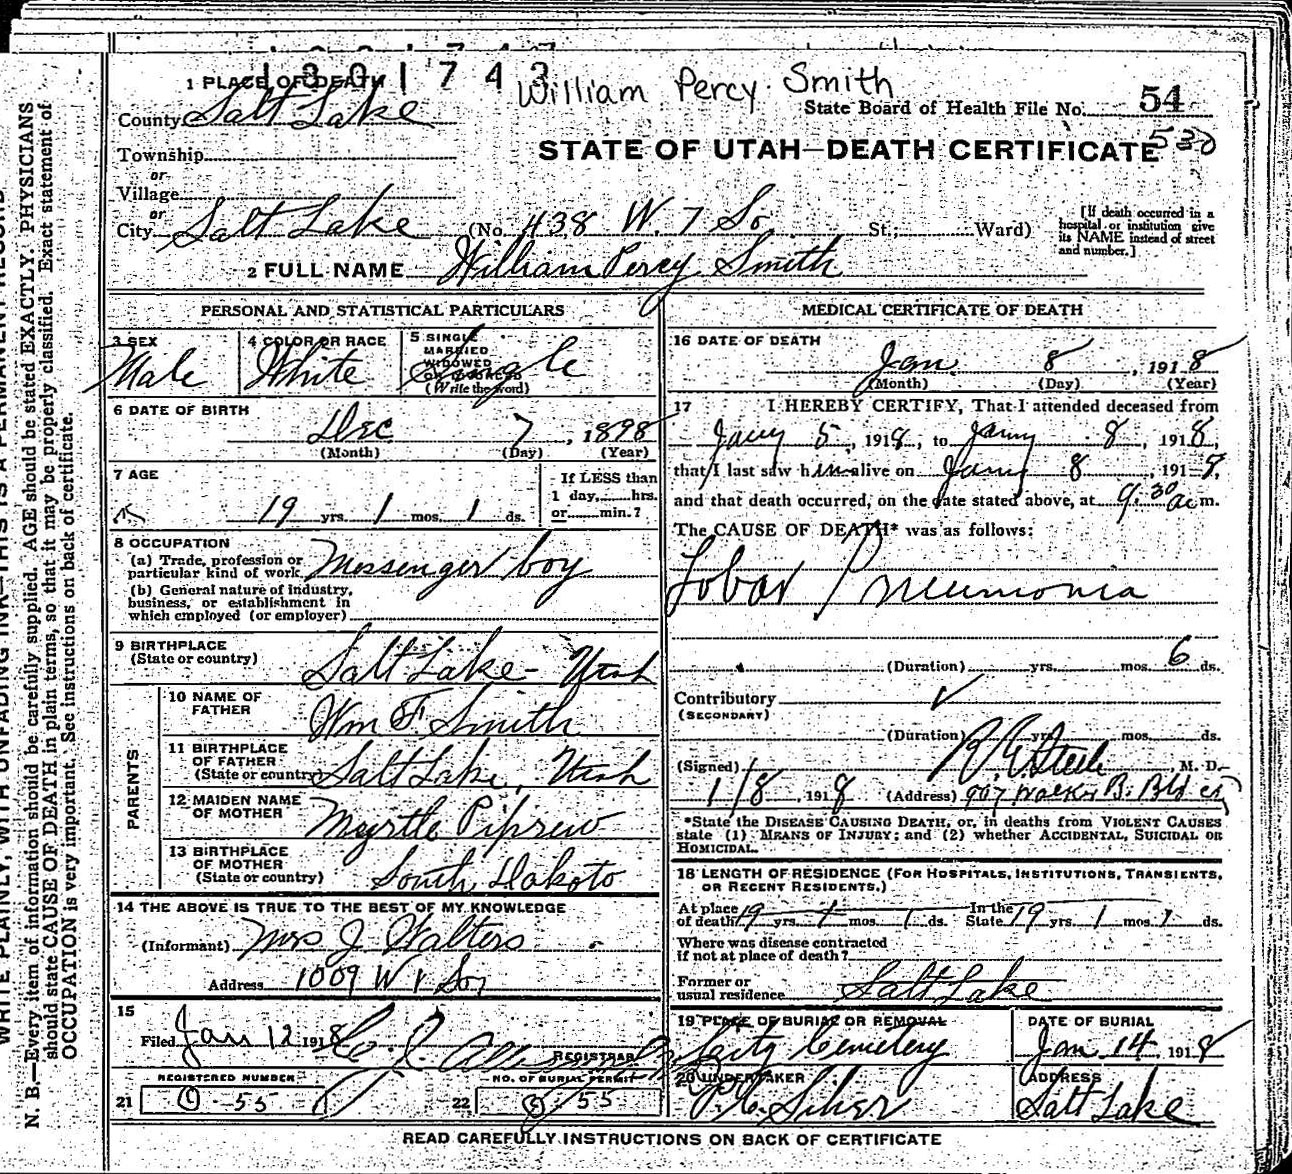 1301743
William Percy Smith
1 PLACE OF DEATH
County Salt Lake
State Board of Health File No. 54
530
Township
or
Village
or
STATE OF UTAH—DEATH CERTIFICATE
City Salt Lake (No. 438 W. 7 So. St.; Ward)
[If death occurred in a hospital or institution give its NAME instead of street and number.]
2 FULL NAME William Percy Smith
PERSONAL AND STATISTICAL PARTICULARS
3 SEX Male
4 COLOR OR RACE White
5 SINGLE MARRIED WIDOWED OR DIVORCED (Write the word) Single
6 DATE OF BIRTH
Dec 7, 1898
(Month) (Day) (Year)
7 AGE
19 yrs. 1 mos. 1 ds.
If LESS than 1 day, hrs. or min.?
8 OCCUPATION
(a) Trade, profession or particular kind of work Messenger boy
(b) General nature of industry, business, or establishment in which employed (or employer)
9 BIRTHPLACE
(State or country) Salt Lake - Utah
PARENTS
10 NAME OF FATHER Wm F. Smith
11 BIRTHPLACE OF FATHER (State or country) Salt Lake, Utah
12 MAIDEN NAME OF MOTHER Myrtle
13 BIRTHPLACE OF MOTHER (State or country) South Dakota
14 THE ABOVE IS TRUE TO THE BEST OF MY KNOWLEDGE
(Informant) Mrs J Walters
Address 1009 W 1 So
15
Filed Jan 12 1918
REGISTRAR
REGISTERED NUMBER
21 55
NO. OF BURIAL PERMIT
22 55
MEDICAL CERTIFICATE OF DEATH
16 DATE OF DEATH
Jan. 8, 1918
(Month) (Day) (Year)
17 I HEREBY CERTIFY, That I attended deceased from
Jany 5, 1918, to Jany 8, 1918,
that I last saw him alive on Jany 8, 191
and that death occurred, on the date stated above, at 9.30 a.m.
The CAUSE OF DEATH* was as follows:
Lobar Pneumonia
(Duration) yrs. mos. 6 ds.
Contributory
(SECONDARY)
(Duration) yrs. mos. ds.
(Signed) Steele, M. D.
1/8, 1918 (Address) 907 Walker B. Bld
*State the DISEASE CAUSING DEATH, or, in deaths from VIOLENT CAUSES
state (1) MEANS OF INJURY; and (2) whether ACCIDENTAL, SUICIDAL OR
HOMICIDAL.
18 LENGTH OF RESIDENCE (FOR HOSPITALS, INSTITUTIONS, TRANSIENTS,
OR RECENT RESIDENTS.)
At place of death 19 yrs. 1 mos. 1 ds. In the State 19 yrs. 1 mos. 1 ds.
Where was disease contracted
if not at place of death?
Former or usual residence Salt Lake
19 PLACE OF BURIAL OR REMOVAL City Cemetery
DATE OF BURIAL Jan 14, 1918
20 UNDERTAKER
ADDRESS Salt Lake
READ CAREFULLY INSTRUCTIONS ON BACK OF CERTIFICATE
WRITE PLAINLY, WITH UNFADING INK—THIS IS A PERMANENT RECORD
N. B.—Every item of information should be carefully supplied. AGE should be stated EXACTLY. PHYSICIANS
should state CAUSE OF DEATH in plain terms, so that it may be properly classified. Exact statement of
OCCUPATION is very important. See instructions on back of certificate.